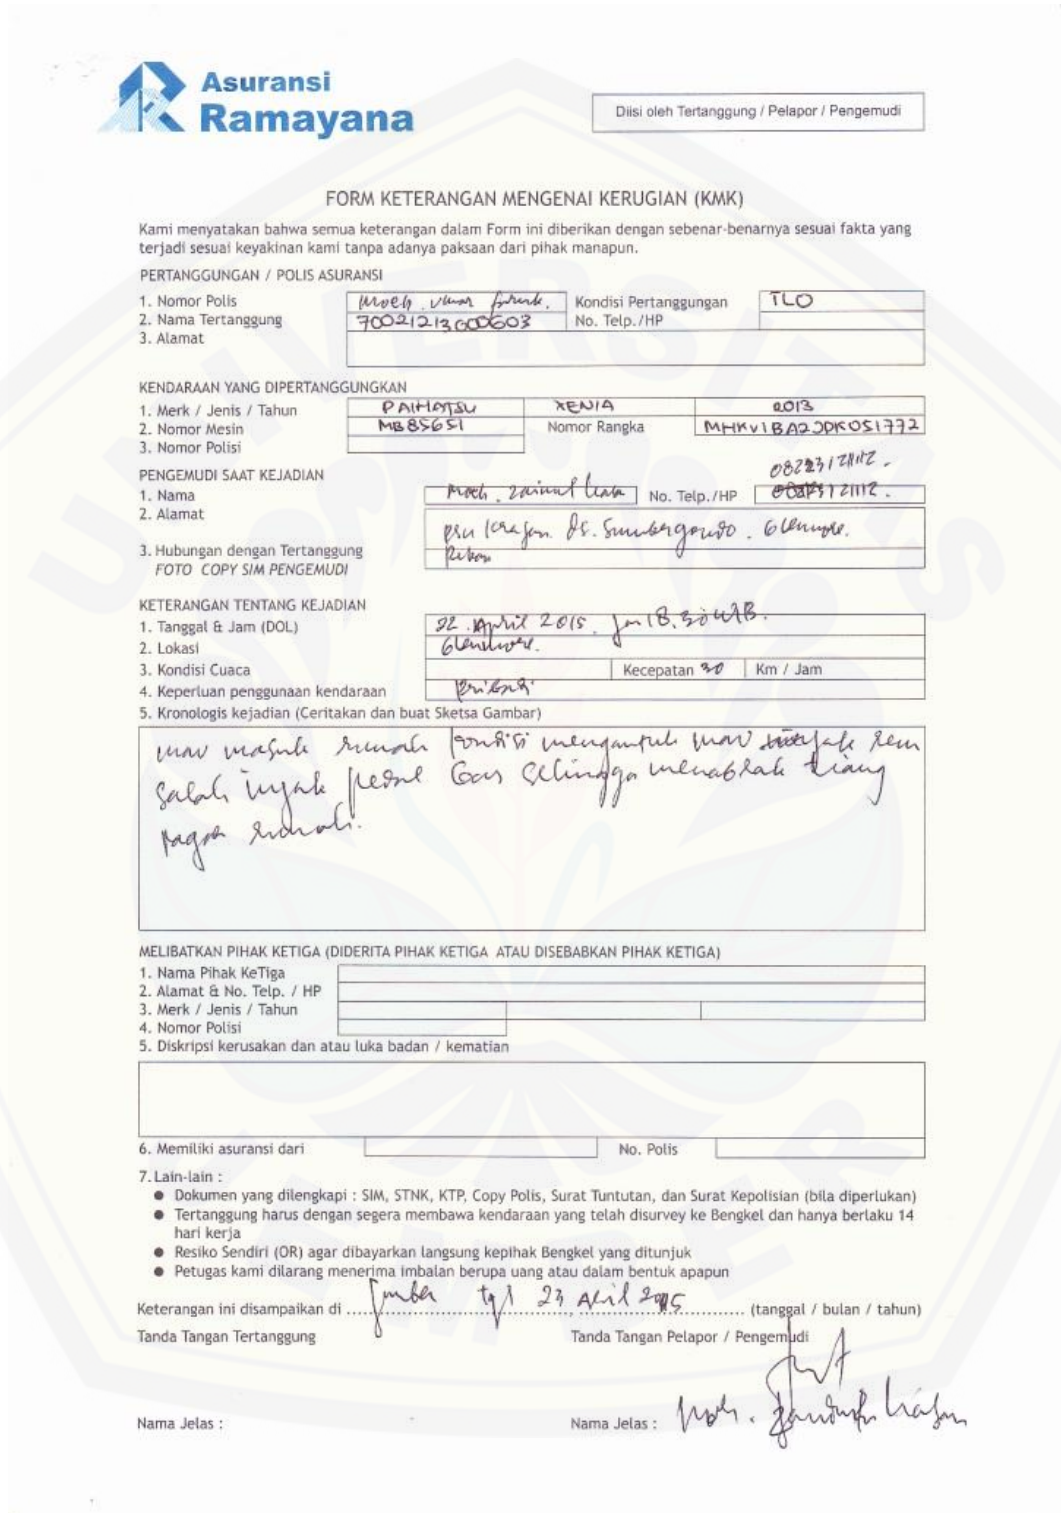 Asuransi
Ramayana
Diisi oleh Tertanggung / Pelapor / Pengemudi
FORM KETERANGAN MENGENAI KERUGIAN (KMK)
Kami menyatakan bahwa semua keterangan dalam Form ini diberikan dengan sebenar-benarnya sesuai fakta yang
terjadi sesuai keyakinan kami tanpa adanya paksaan dari pihak manapun.
PERTANGGUNGAN / POLIS ASURANSI
1. Nomor Polis Moch. Umar Kondisi Pertanggungan TLO
2. Nama Tertanggung 70021213000603 No. Telp./HP
3. Alamat
KENDARAAN YANG DIPERTANGGUNGKAN
1. Merk / Jenis / Tahun DAIHATSU XENIA 2013
2. Nomor Mesin MB85651 Nomor Rangka MHKV1BA2JDK051772
3. Nomor Polisi
PENGEMUDI SAAT KEJADIAN 082231211112.
1. Nama Moch. Zainul No. Telp./HP
2. Alamat Krajan. Ds. Sumbergondo. Glenmore.
3. Hubungan dengan Tertanggung Rekan
FOTO COPY SIM PENGEMUDI
KETERANGAN TENTANG KEJADIAN
1. Tanggal & Jam (DOL) 22 April 2015. Jam 18.30 WIB.
2. Lokasi Glenmore.
3. Kondisi Cuaca Kecepatan 30 Km / Jam
4. Keperluan penggunaan kendaraan Pribadi
5. Kronologis kejadian (Ceritakan dan buat Sketsa Gambar)
mau masuk rumah kondisi mengantuk mau injak rem
salah injak pedal Gas sehingga menabrak tiang
pagar rumah.
MELIBATKAN PIHAK KETIGA (DIDERITA PIHAK KETIGA ATAU DISEBABKAN PIHAK KETIGA)
1. Nama Pihak KeTiga
2. Alamat & No. Telp. / HP
3. Merk / Jenis / Tahun
4. Nomor Polisi
5. Diskripsi kerusakan dan atau luka badan / kematian
6. Memiliki asuransi dari No. Polis
7. Lain-lain :
● Dokumen yang dilengkapi : SIM, STNK, KTP, Copy Polis, Surat Tuntutan, dan Surat Kepolisian (bila diperlukan)
● Tertanggung harus dengan segera membawa kendaraan yang telah disurvey ke Bengkel dan hanya berlaku 14
hari kerja
● Resiko Sendiri (OR) agar dibayarkan langsung kepihak Bengkel yang ditunjuk
● Petugas kami dilarang menerima imbalan berupa uang atau dalam bentuk apapun
Keterangan ini disampaikan di Jember tgl 23 April 2015 (tanggal / bulan / tahun)
Tanda Tangan Tertanggung Tanda Tangan Pelapor / Pengemudi
Nama Jelas : Nama Jelas : Moch.
UNIVERSITAS
JEMBER